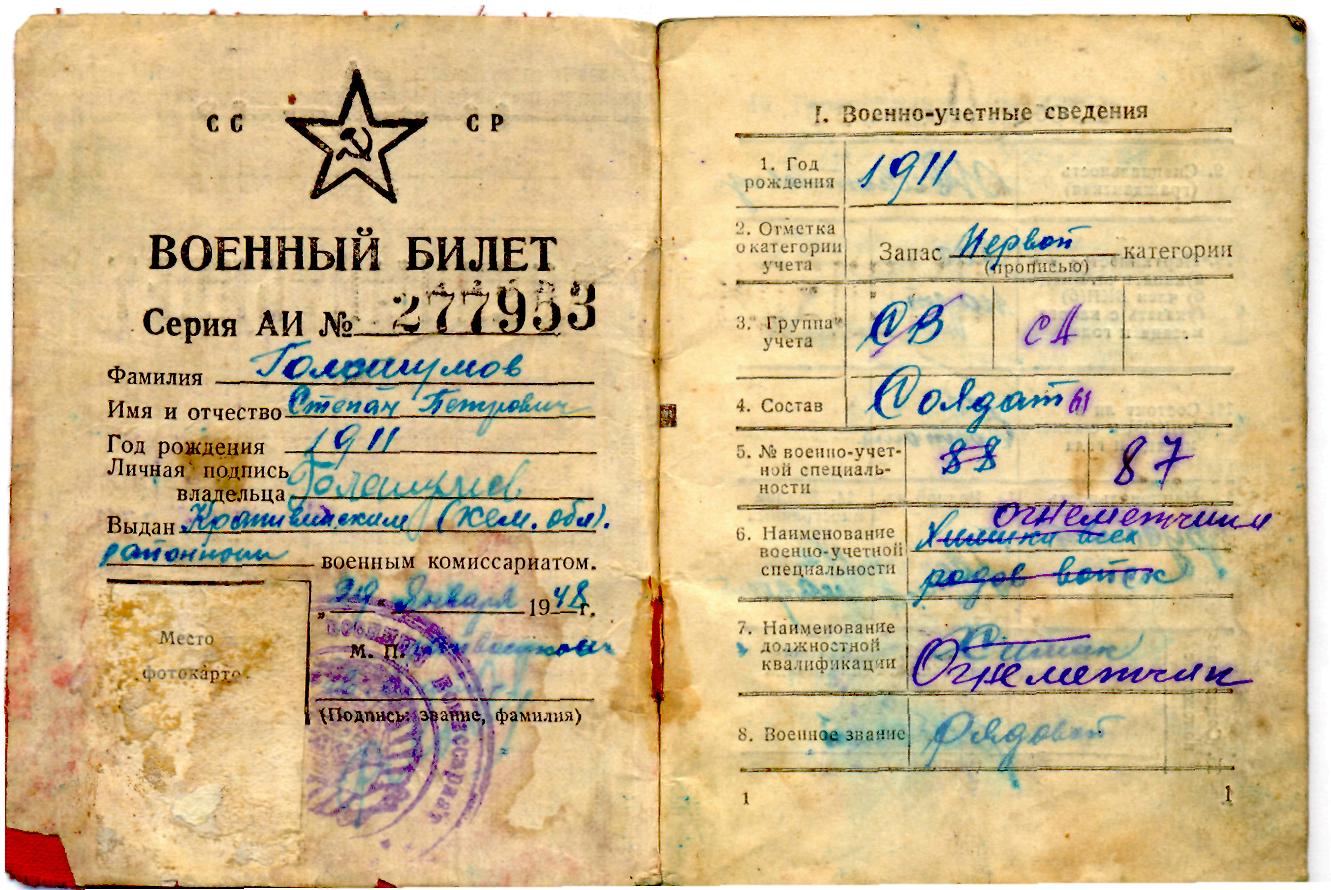 СС СР
ВОЕННЫЙ БИЛЕТ
Серия АИ № 277953
Фамилия Голошумов
Имя и отчество Степан Петрович
Год рождения 1911
Личная подпись
владельца
Выдан Крапивинским (Кем. обл).
районным военным комиссариатом.
Января 1948 г.
Место
фотокарто
М. П.
(Подпись: звание, фамилия)
I. Военно-учетные сведения
1. Год
рождения 1911
2. Отметка
о категории
учета
Запас Первой категории
(прописью)
3. "Группа"
учета СВ СА
4. Состав Солдаты
5. № военно-учет-
ной специаль-
ности 88 87
6. Наименование
военно-учетной
специальности
огнеметчики
Химики всех
родов войск
7. Наименование
должностной
квалификации
Химик
Огнеметчик
8. Военное звание Рядовой
1 1